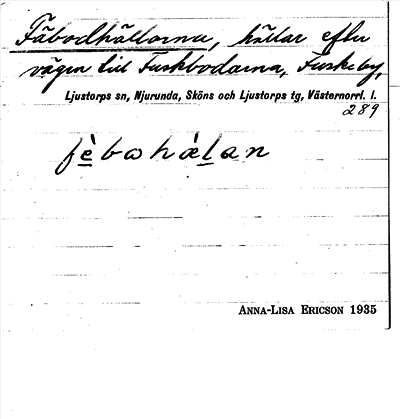 Fäbodhällorna, hällar efter
vägen till Fuskbodarna, Fuskeby,
Ljustorps sn, Njurunda, Sköns och Ljustorps tg, Västernorrl. l.
289
fèbωhàlan
ANNA-LISA ERICSON 1935